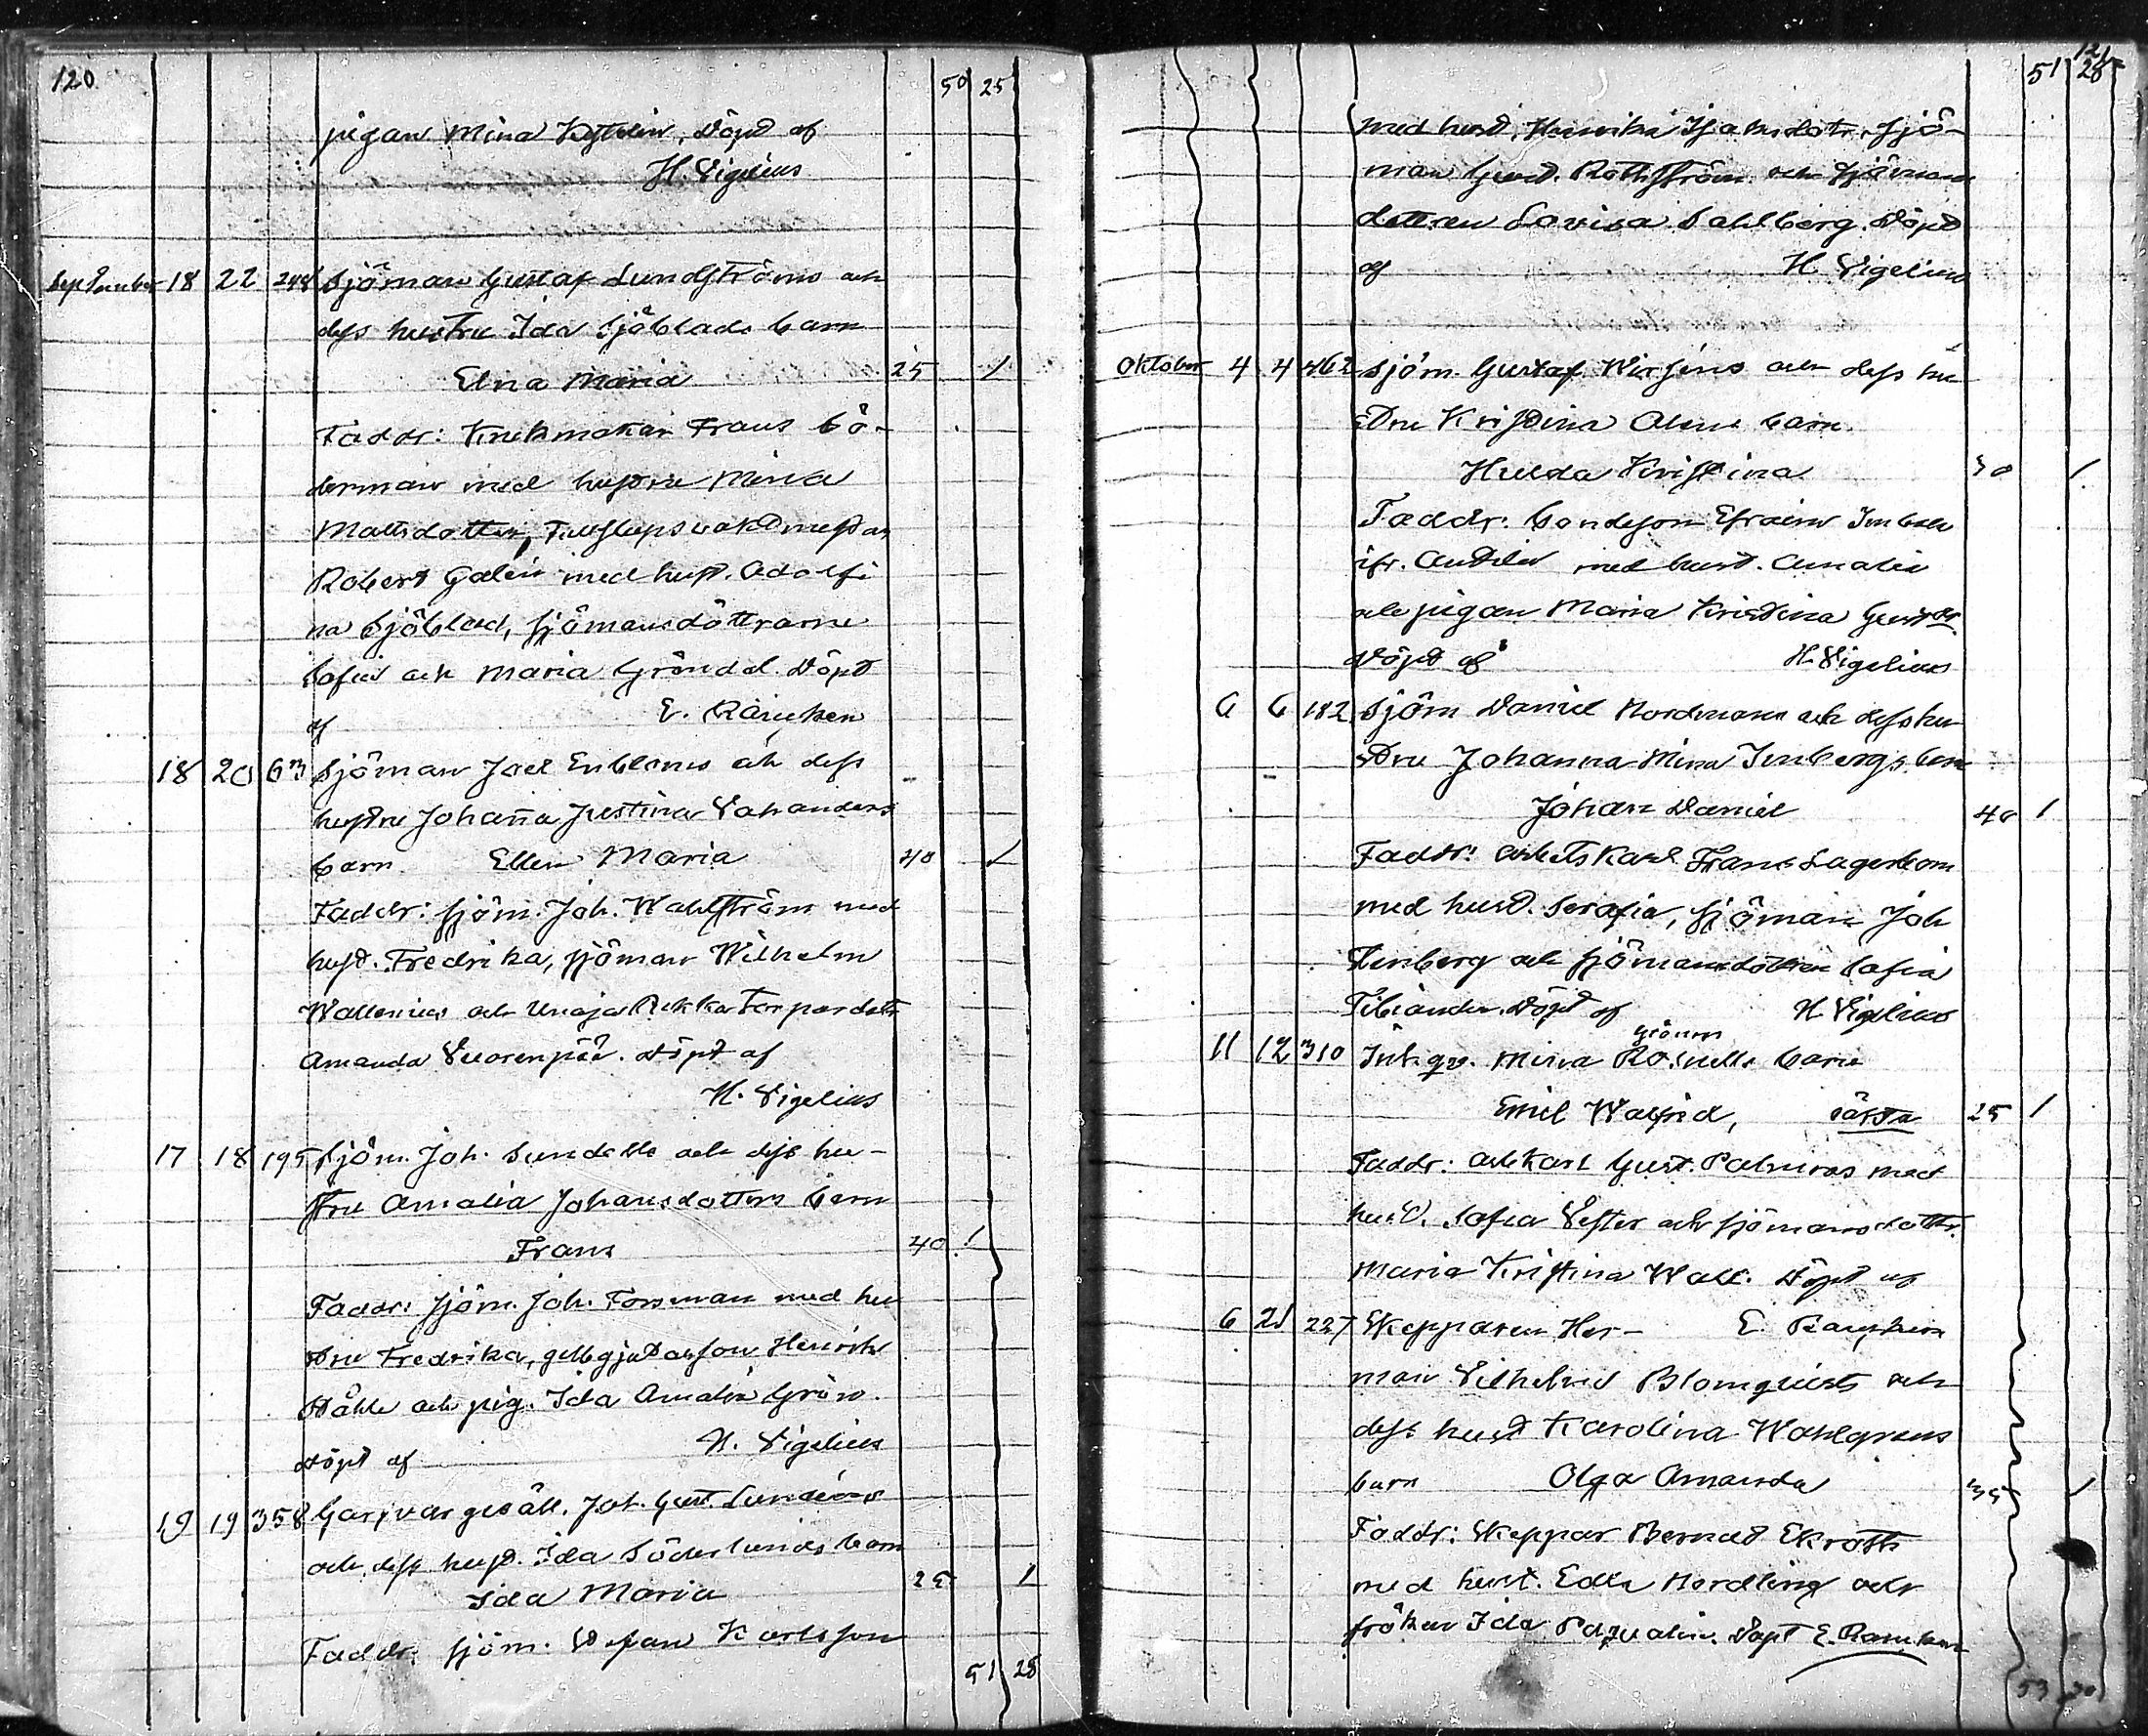 120
50 25
pigan Mina döpt af
H. Vigelius
September 18 22 248 Sjöman Gustaf Lundströms och
dess hustru Ida Sjöblads barn
Elna Maria 25 1
Faddr: Krukmakar Frans Sö-
derman med hustru Mina
Mattsdotter,
Robert Galén med hust. Adolfi
na Sjöblad, sjömansdöttrarne
Sofia och Maria Gröndal. Döpt
af E.
18 20 63 Sjöman Joel Enbloms och dess
hustru Johanna Justina Vahanders
barn Ellen Maria 40 1
Faddr: sjöm. Joh. Wahlström med
hust. Fredrika, sjöman Wilhelm
Wallenius och Unaja Torpardottr
Amanda Vuorenpää. Döpt af
H. Vigelius
17 18 195 Sjöm. Joh. Sundells och dess hu-
stru Amalia Johansdotters barn
Frans 40 1
Faddr: sjöm. Joh. Forsman med hu
stru Fredrika, Henrik
Ståhle och pig. Ida Amalia Grön.
Döpt af H. Vigelius
19 19 358 Garfvar gesäll. Joh. Gust. Lundéns
och dess hust. Ida Söderlunds barn
Ida Maria 25 1
Faddr. sjöm. Stefan Karlsson
51 25
121
51 25
med hust. Henrika Isaksdotr, sjö-
man Gust. Rothström och sjömans
dottren Lovisa Sahlberg. Döpt
af H. Vigelius
Oktober 4 4 462 Sjöm. Gustaf Wirséns och dess hu
stru Kristina Alens barn
Hulda Kristina 30 1
Faddr: Bondeson Efraim
ifr. med hust. Amalia
och pigan Maria Kristina Gustdr.
Döpt af H. Vigelius
6 6 182 Sjöm Daniel Nordmans och dess hu
stru Johanna Mina Inbergs barn
Johan Daniel 40 1
Faddr: arbetskarl Frans Lagerbom
med hust. Serafia, sjöman Joh
Inberg och sjömansdottren Sofia
Tiliander. Döpt af H. Vigelius
11 12 310 Inh. qv. Mina Rosnells barn
Emil Walfrid, oäkta 25 1
Faddr: arb karl Gust. Palmros med
hust. Sofia Vester och sjömansdottr.
Maria Kristina Wall. Döpt af
6 21 227 Skepparen Her- E.
man Vilhelm Blomqvists och
dess hust Karolina Wahlgrens
barn Olga Amanda 35 1
Faddr: Skeppar Bernad Ekroth
med hust. Edla Nordling och
fröken Ida Döpt E.
53 30